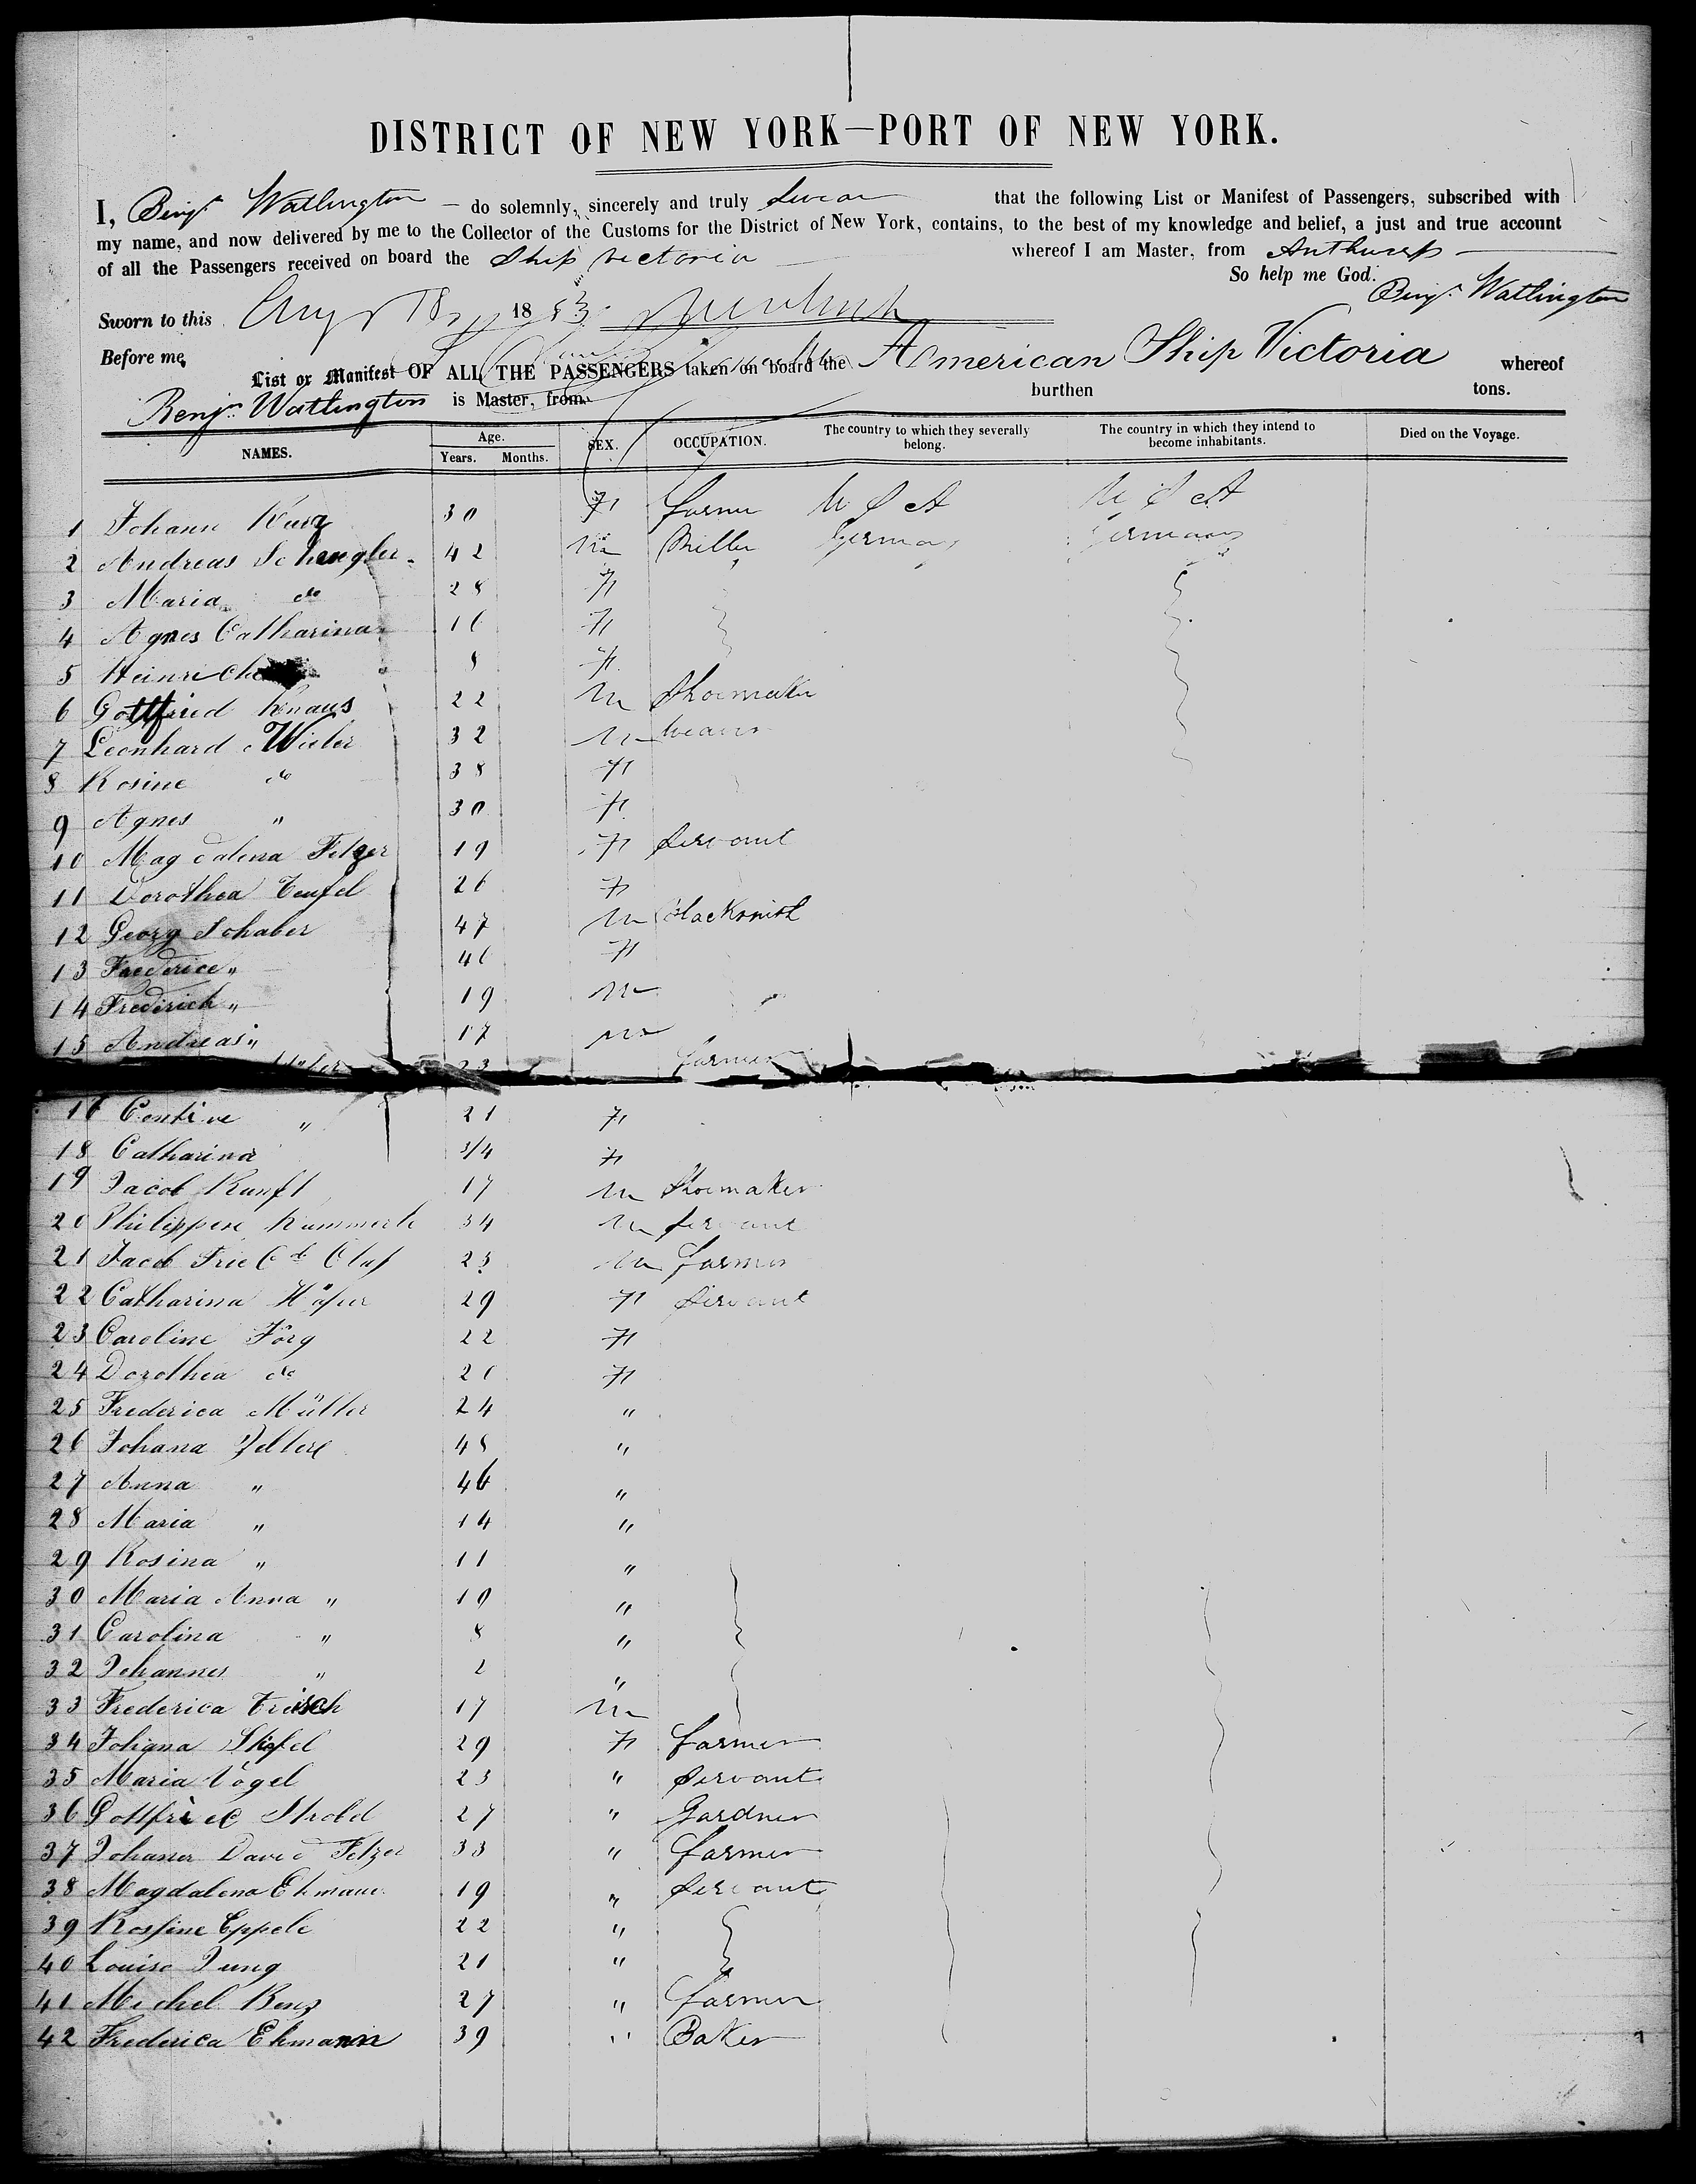 DISTRICT OF NEW YORK—PORT OF NEW YORK.
I, Benjn Watlington — do solemnly, sincerely and truly Swear that the following List or Manifest of Passengers, subscribed with
my name, and now delivered by me to the Collector of the Customs for the District of New York, contains, to the best of my knowledge and belief, a just and true account
of all the Passengers received on board the Ship Victoria whereof I am Master, from Anthwerp
So help me God.
Benjn Watlington
Sworn to this Aug 18 1853
Before me,
List or Manifest OF ALL THE PASSENGERS taken on board the American Ship Victoria whereof
Benjn Watlington is Master, from burthen tons.
NAMES. Age. Years. Months. SEX. OCCUPATION. The country to which they severally belong. The country in which they intend to become inhabitants. Died on the Voyage.
1 Johann Kurz 30 F farmer U S A U S A
2 Andreas Schengler 42 m Miller Germany Germany
3 Maria do 28 F
4 Agnes Catharina 16 F
5 8 F
6 Gottfried Knaus 22 m Shoemaker
7 Leonhard Wieler 32 m weaver
8 Rosine do 38 F
9 Agnes " 30 F
10 Magdalena Felzer 19 F Servant
11 Dorothea Teufel 26 F
12 Georg Schaber 47 m blacksmith
13 Frederice " 46 F
14 Frederich " 19 m
15 Andreas " 17 m
23 farmer
" 21 F
18 Catharina 3/4 F
19 Jacob Kunft 17 m Shoemaker
20 Philippine Kummerle 34 m servant
21 Jacob 23 m farmer
22 Catharina Häfer 29 F Servant
23 Caroline Förg 22 F
24 Dorothea do 26 F
25 Frederica Müller 24 "
26 Johana 48 "
27 Anna " 46 "
28 Maria " 14 "
29 Rosina " 11 "
30 Maria Anna " 10 "
31 Carolina " 8 "
32 Johannes " 2 "
33 Frederica Trisch 17 m
34 Johana 29 F farmer
35 Maria Vogel 23 " Servant
36 Gottfried Strobel 27 " Gardner
37 Johann David Felzer 33 " farmer
38 Magdalena Ehmann 19 " Servant
39 Rossine Eppele 22 "
40 Louise Jung 21 "
41 Michel Benz 27 " farmer
42 Frederica Ehmann 39 " Baker